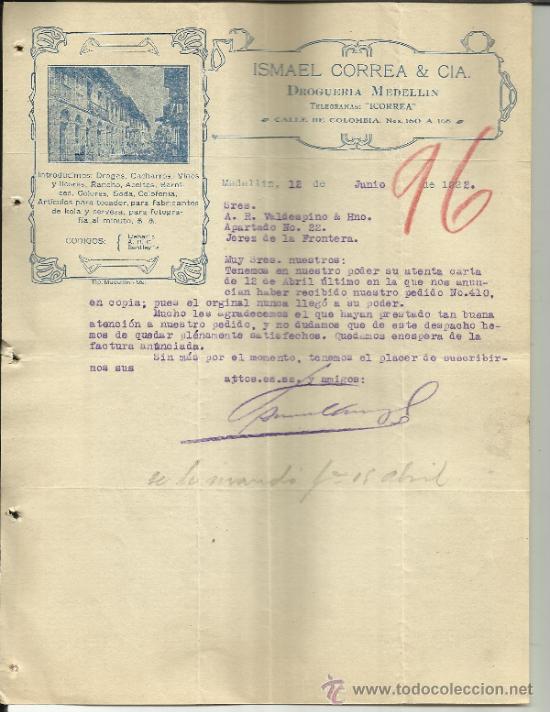 ISMAEL CORREA & CIA.
DROGUERIA MEDELLIN
TELEGRAMAS: "ICORREA"
CALLE DE COLOMBIA, Nos. 160 A 168
Introducimos: Drogas, Cacharros, Vinos
y licores, Rancho, Aceites, Barni-
ces, Colores, Soda, Colofonia,
Artículos para tocador, para fabricantes
de kola y cerveza, para fotogra-
fía al minuto, & &
CODIGOS:
Lieber's
A. B. C.
Bentley's
Tip. Medellín
96
Medellin, 12 de Junio de 1922.
Sres.
A. R. Valdespino & Hno.
Apartado No. 22.
Jerez de la Frontera.
Muy Sres. nuestros:
Tenemos en nuestro poder su atenta carta
de 12 de Abril último en la que nos anun-
cian haber recibido nuestro pedido No.410,
en copia; pues el orginal nunca llegó a su poder.
Mucho les agradecemos el que hayan prestado tan buena
atención a nuestro pedido, y no dudamos que de este despacho he-
mos de quedar plénamente satisfechos. Quedamos enespera de la
factura anunciada.
Sin más por el momento, tenemos el placer de suscribir-
nos sus
attos.ss.ss. y amigos:
se lo mandó 15 abril
© www.todocoleccion.net